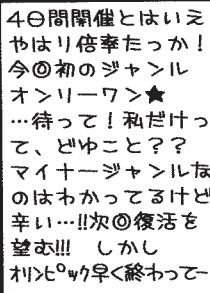 4日間開催とはいえ
やはり倍率たっか!
今回初のジャンル
オンリーワン★
…待って!私だけっ
て、どゆこと??
マイナージャンルな
のはわかってるけど
辛い…!!次回復活を
望む!!!　しかし
オリンピック早く終わってー